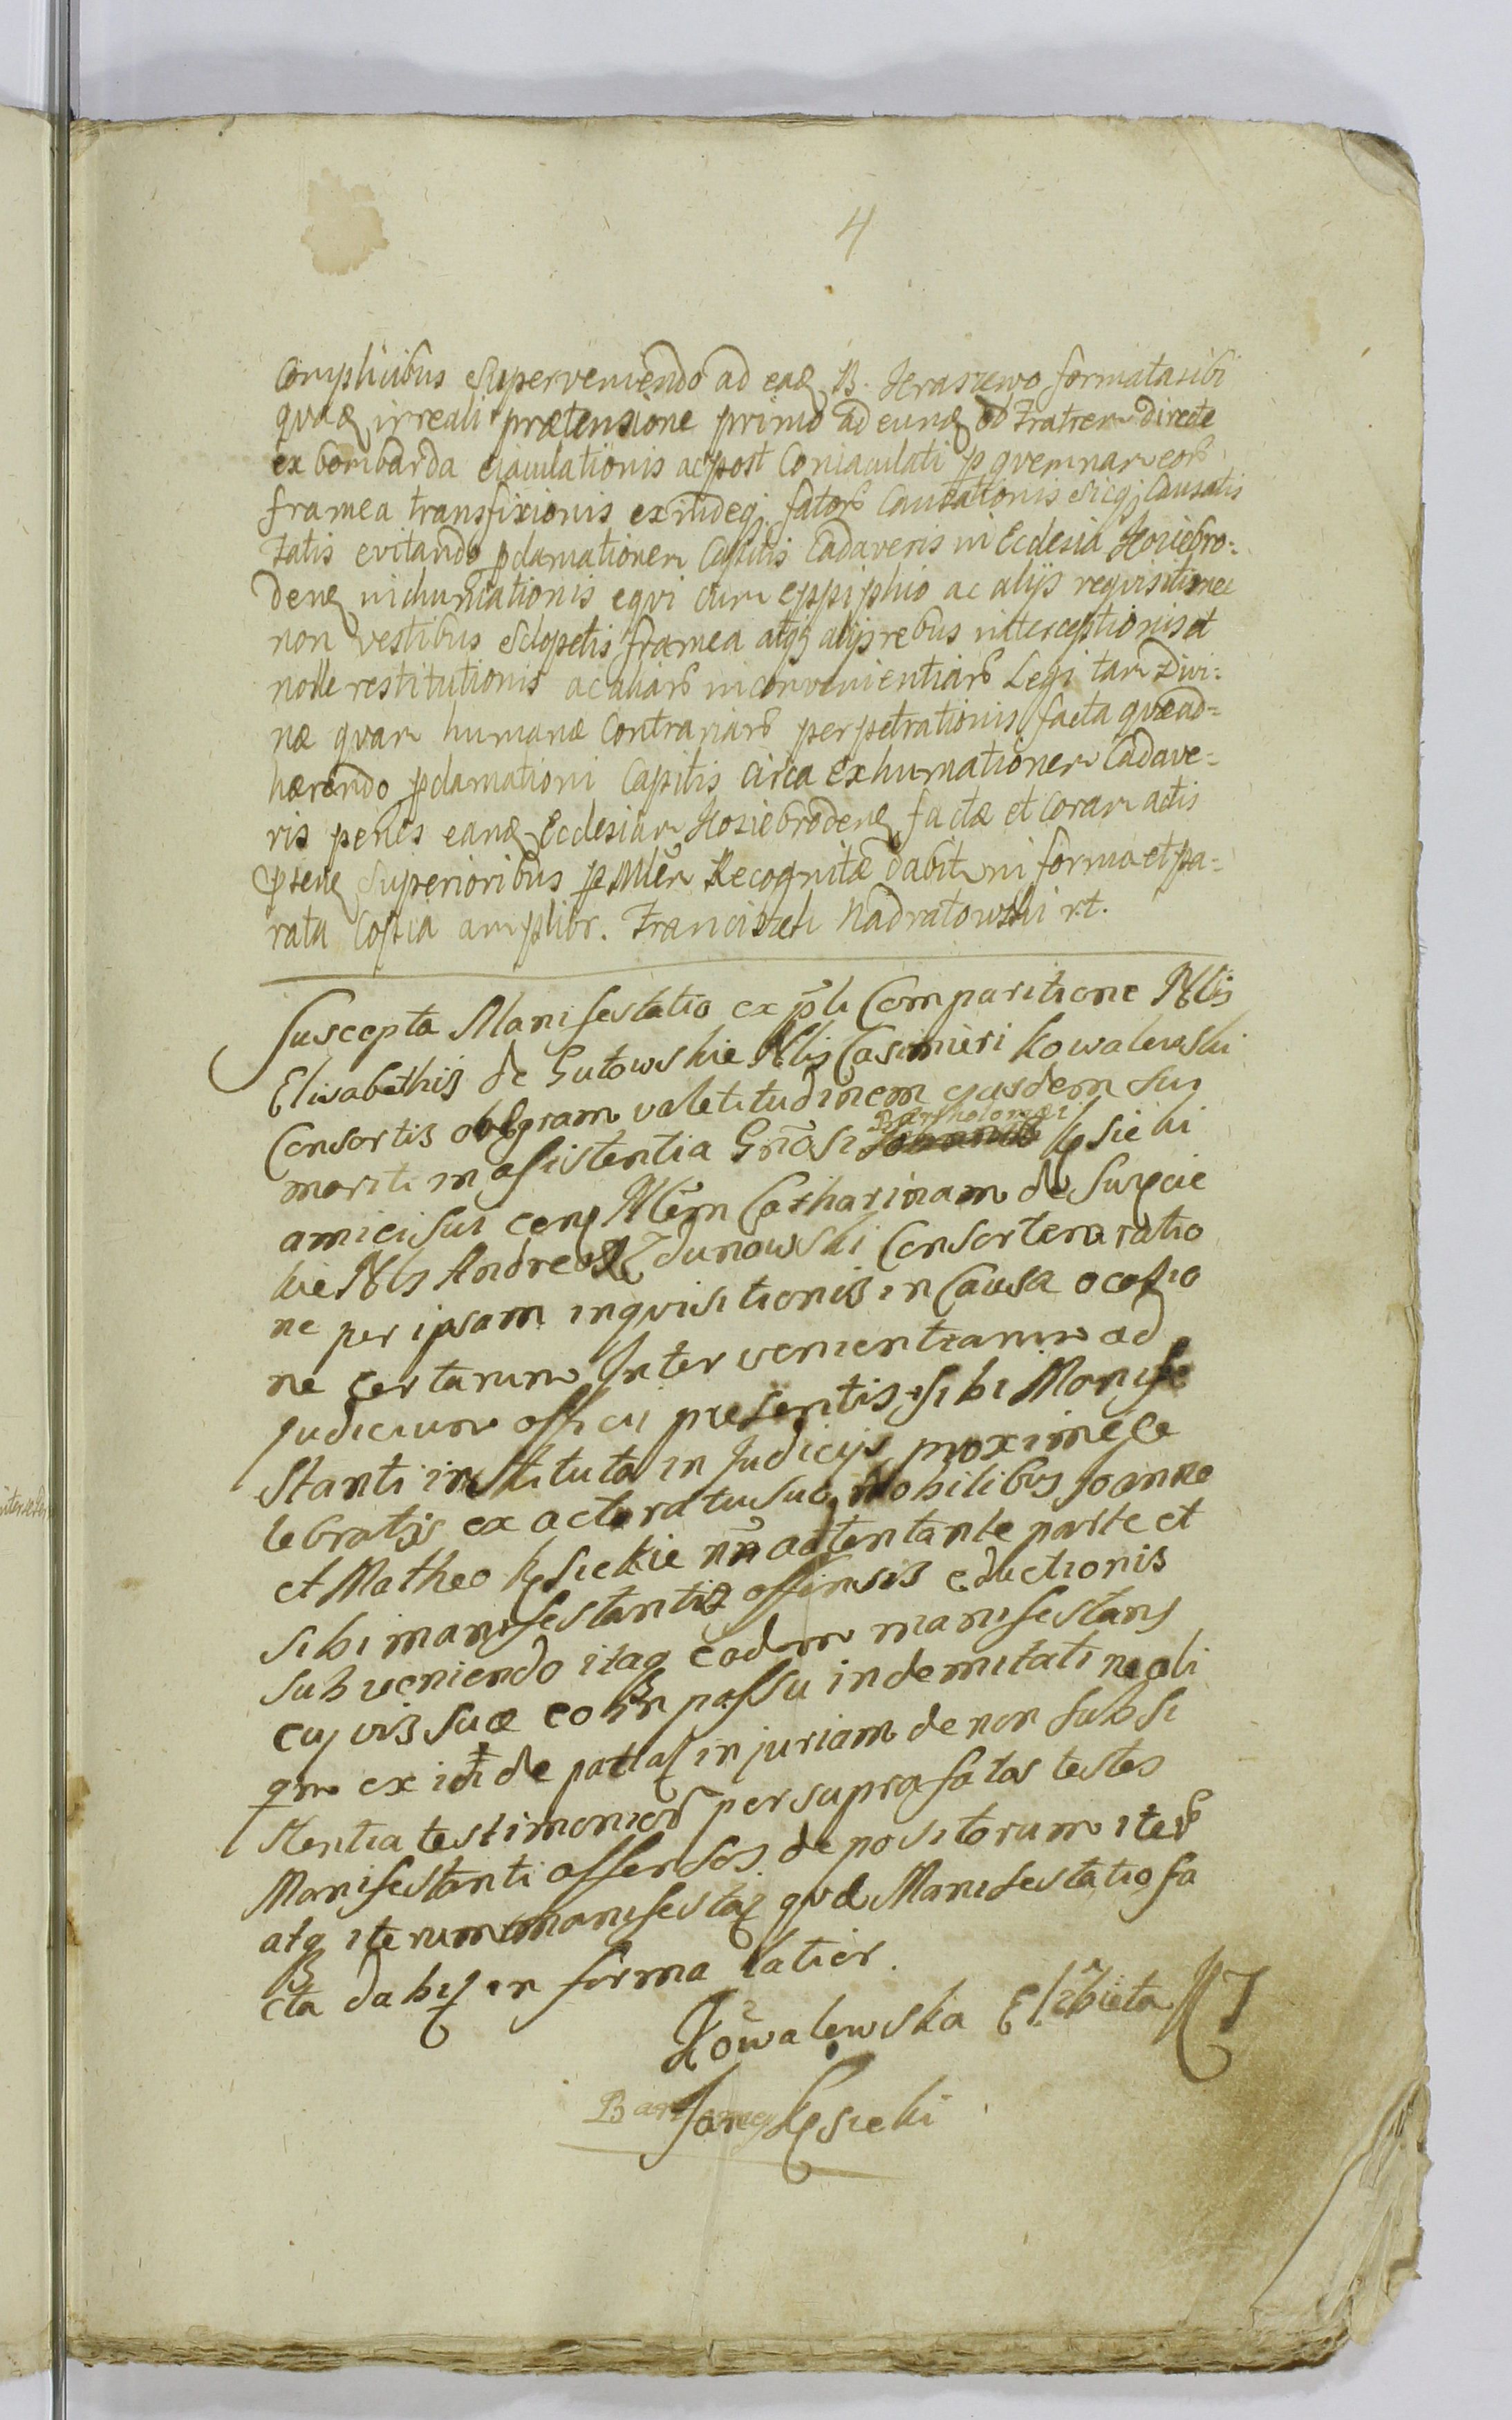 4
Complicibus superveniendo ad eand B. Jeraszewo formata sibi
quad irreali prætensione primo ad eund et Fratrem directe
ex bombarda eiaculationis ac post Coniaculati p quemnam eor
framea transfixionis exindeq fator Causationis sicq Causatis
Fatis evitando pclamationem Capitis Cadaveris in Ecclesia Kosiebro=
den inhumationis equi cum eppiphio ac alijs requisitis nec
non vestibus sclopetis framea atq alijs rebus interceptionis et
nolle restitutionis ac aliar inconvenientiar Legi tam Divi=
næ quam humanæ Contrariar perpetrationis facta quæ ad=
hærendo pclamationi Capitis circa exhumationem Cadave=
ris penes eand Ecclesiam Kosiebroden factæ et coram actis
psen Superioribus p Mlem Recognitæ dabit in forma et pa=
rata Copia amplior. Franciszek Nadratowski rt.
Suscepta Manifestatio ex pli Comparitione Nlis
Elisabethis de Gutowskie Nlis Casimieri Kowalewski
Consortis ob egram valetitudinem ejusdem sui
mariti in assistentia Gnosi Bartholomæi Kęsicki
amici sui con Nlem Catharinam de Supcie
kie Nlis Andreæ Zdunowski Consortem ratio
ne per ipsam inquisitionis in Causa ocasio
ne certarum Intervenientiarum ad
Judicium officij presentis sibi Manife
stanti instituta in Judicijs proxime ce
lebratis ex actoratu suo Nobilibus Joanne
et Matheo Kęsickie nn adtentante parte et
sibi manifestanti offensis eductionis
subveniendo itaq eadem manifestans
cujvis suæ eo in passu indemnitati ne ali
qm ex inde patiat injuriam de non subsi
stentia testimonior per suprafatos testes
Manifestanti offensos depositorum iter
atq iterum manifestat qvd Manifestatio fa
cta dabit in forma latior.
Kowalewska Elżbieta RT
Bart Jan Kęsicki